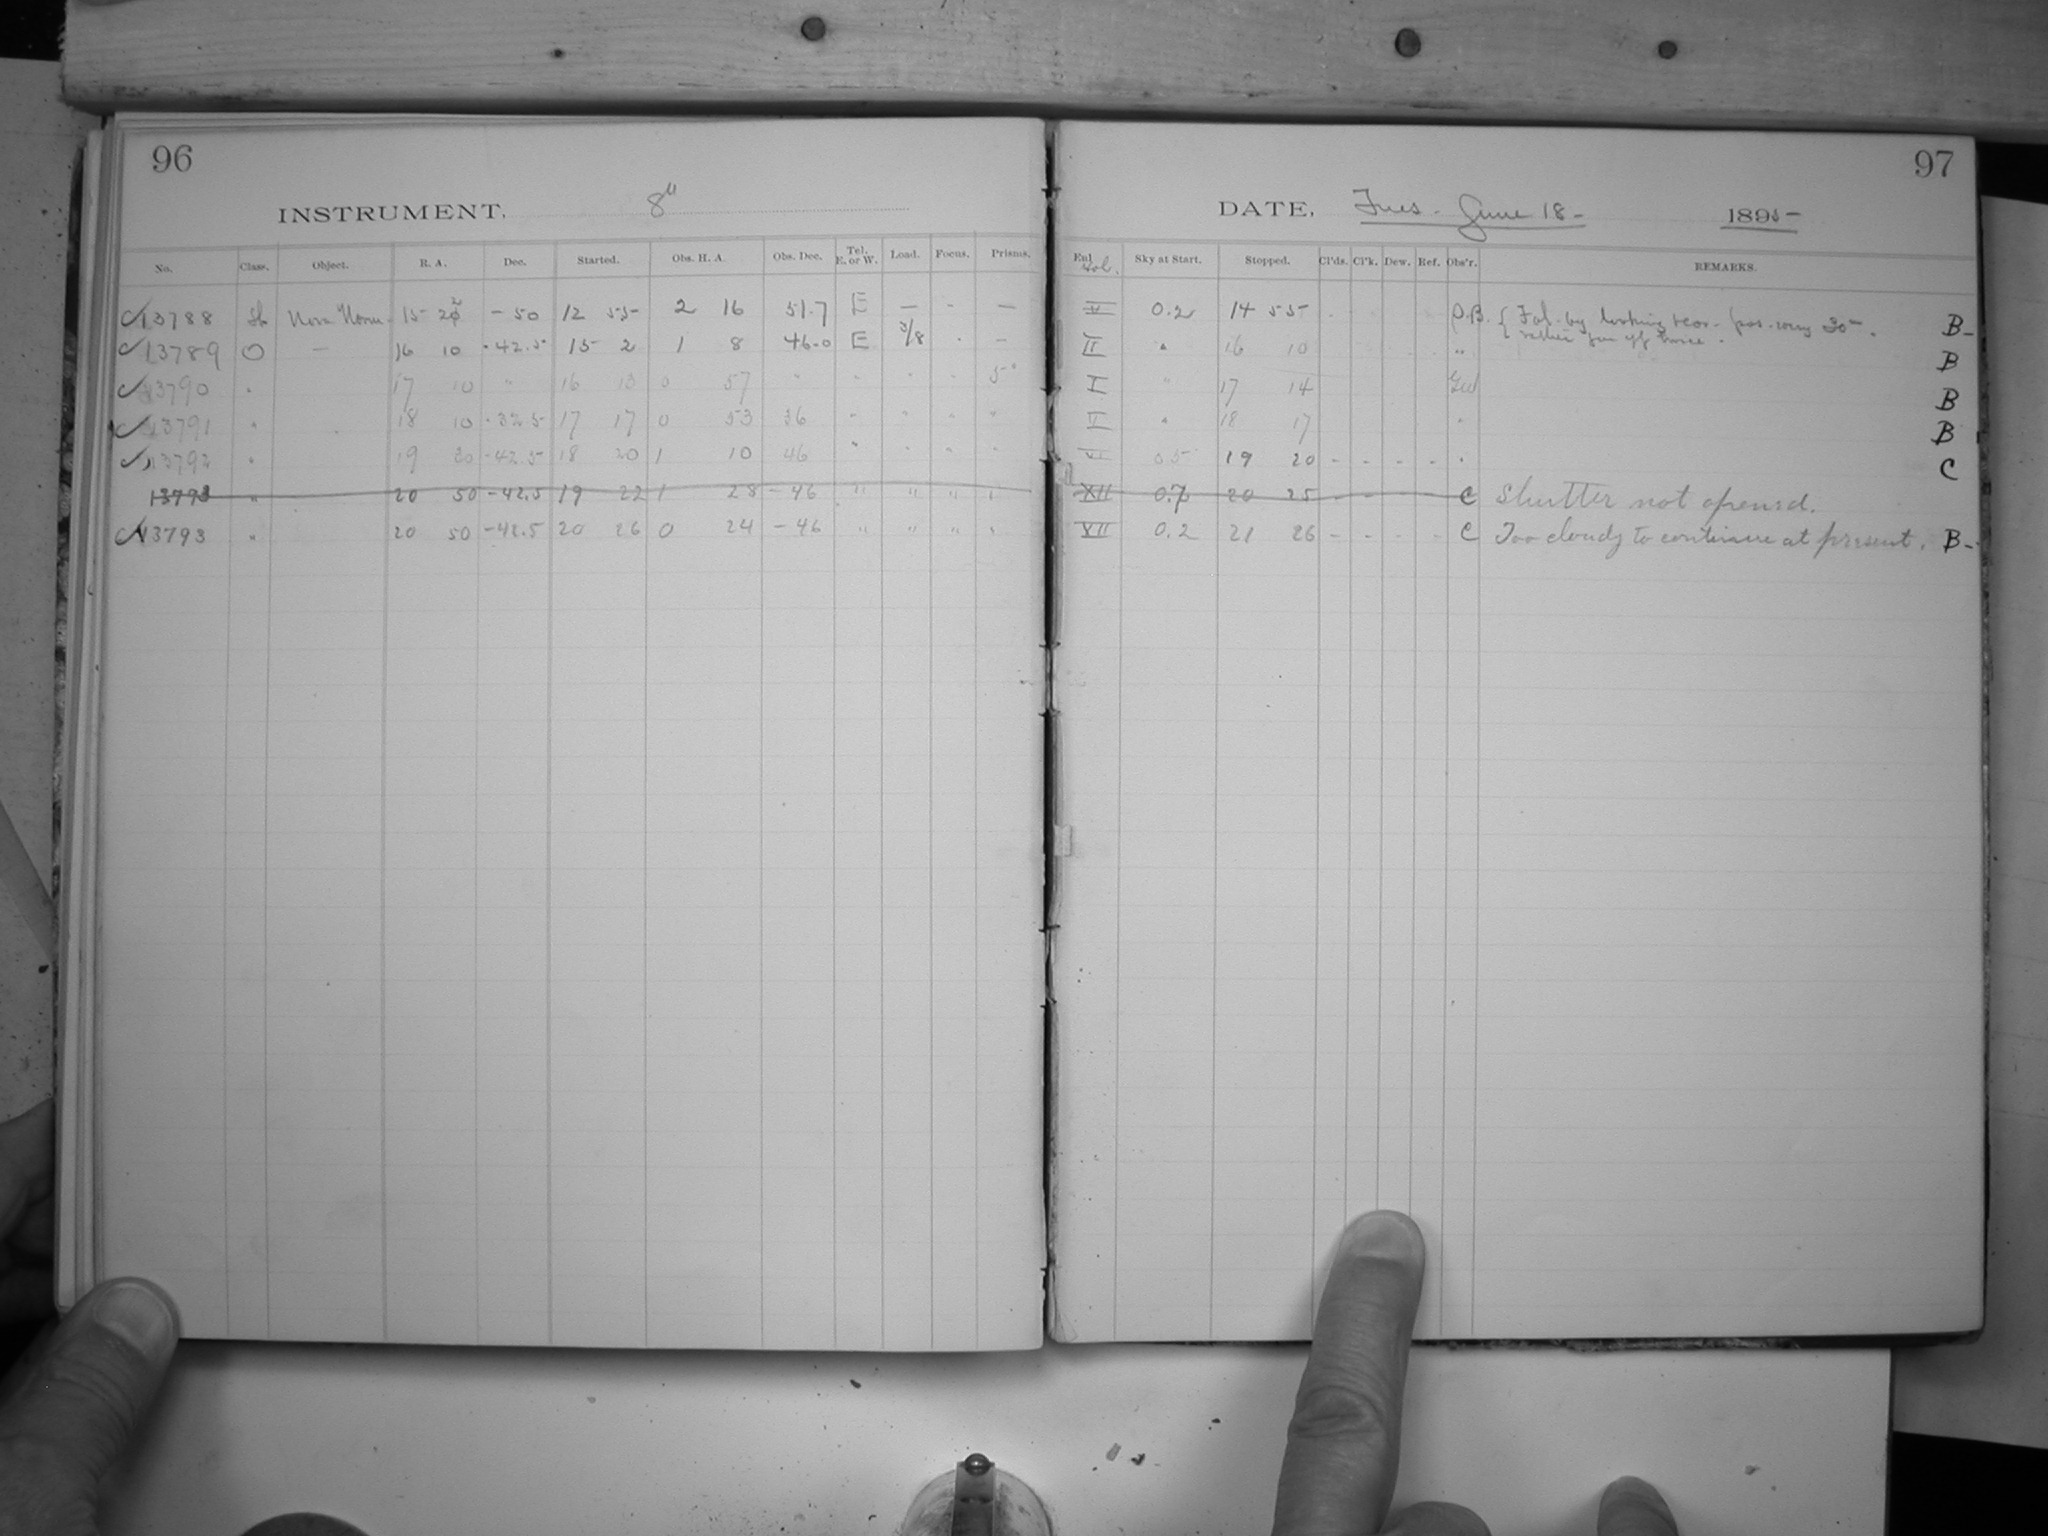 96
INSTRUMENT. 8"
No. Class. Object. R. A. Dec. Started. Obs. H. A. Obs. Dec. Tel. E. or W. Load. Focus. Prisms.
13788 Sh Nova Norm. 15 - 50 12 55 2 16 51.7 E — - —
13789 O — 16 10 -42.5 15 2 1 8 46.0 E 3/8 - —
13790 " 17 10 " 16 13 0 57 " " " " 5°
13791 " 18 10 -32.5 17 17 0 53 36 " " " "
13792 " 19 20 -42.5 18 20 1 10 46 " " " "
13793 " 20 50 -42.5 19 22 1 28 -46 " " " "
13793 " 20 50 -42.5 20 26 0 24 -46 " " " "
97
DATE, Tues. June 18 - 1895
Sky at Start. Stopped. Cl'ds. Cl'k. Dew. Ref. Obs'r. REMARKS.
0.2 14 55 B-
II " 16 10 " B
I " 17 14 B
" 18 17 " B
0.5 19 20 - - - - " C
XII 0.7 20 25 - - - - C Shutter not opened.
XII 0.2 21 26 - - - - C Too cloudy to continue at present. B-